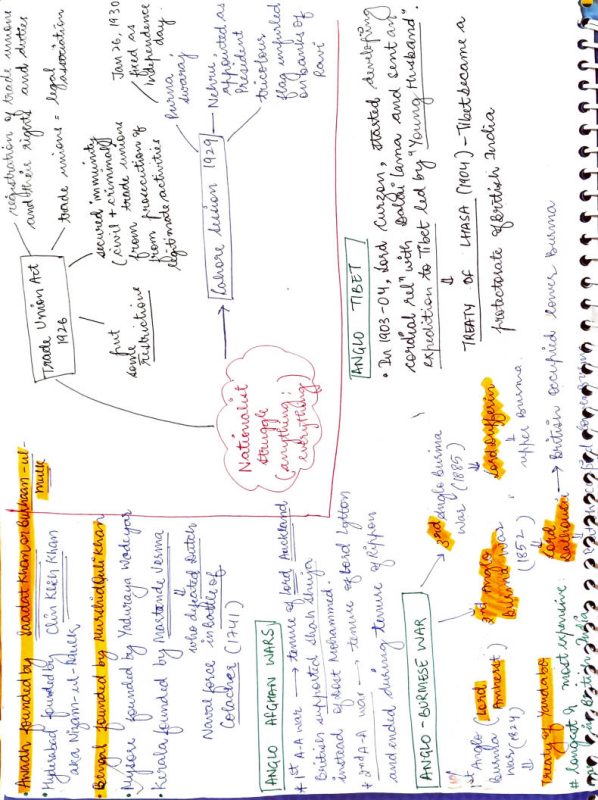 • Awadh founded by Saadat Khan or Burhan-ul-
mulk
• Hyderabad founded by Chin Kleen Khan
aka Nizam-ul-Mulk
• Bengal founded by Murshid Quli Khan
• Mysore founded by Yaduraya Wodeyar
• Kerala founded by Martanda Verma
who defeated Dutch
Naval force in battle of
Colachel (1741)
ANGLO AFGHAN WARS
* 1st A-A war → tenure of Lord Auckland
British supported Shah Shuja
instead of Dost Mohammed.
* 2nd A-A war → tenure of Lord Lytton
and ended during tenure of Rippon
ANGLO-BURMESE WAR
1st Anglo
Burmla (Lord
Amherst)
War (1824)
Treaty of Yandabo
# longest & most expensive
in British India
2nd Anglo
Burma War
(1852)
Lord
Dalhousie → British occupied lower Burma
3rd Anglo Burma
War (1885)
Lord Dufferin
upper Burma
Trade Union Act
1926
registration of trade unions
and their rights and duties
trade unions = legal
association
secured immunity
(civil + criminal)
from trade unions
from prosecution of
legitimate activities
put
some
restrictions
Nationalist
struggle
(anything;
everything)
→ Lahore session 1929
Purna
swaraj
Jan 26, 1930
fixed as
independence
day
Nehru
appointed as
President
tricolour
flag unfurled
on banks of
Ravi
ANGLO TIBET
• In 1903-04, Lord Curzon, started developing
cordial relⁿ with Dalai Lama and sent an
expedition to Tibet led by "Young Husband".
TREATY OF LHASA (1904) - Tibet became a
protectorate of British India